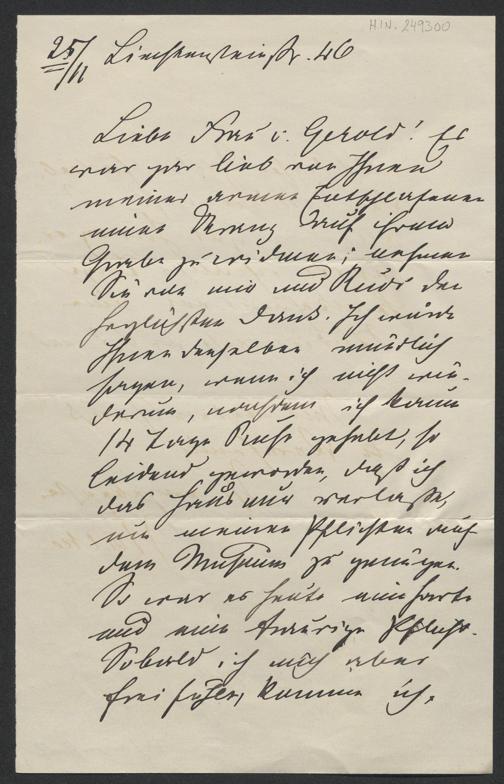 H.I.N. 249300
25/11 Liechtensteinstr. 46
Liebe Frau v. Gerold! Es
war gar lieb von Ihnen
meiner armen Entschlafenen
einen Kranz auf ihrem
Grabe zu widmen; nehmen
Sie von mir und Rudi den
herzlichsten Dank. Ich würde
Ihnen denselben mündlich
sagen, wenn ich nicht wie-
derum, nachdem ich kaum
14 Tage Ruhe gehabt, so
leidend geworden, daß ich
das Haus nur verlasse,
um meinen Pflichten auf
dem Museum zu genügen.
So war es heute eine harte
und eine traurige Pflicht.
Sobald ich mich aber
frei fühle, komme ich,